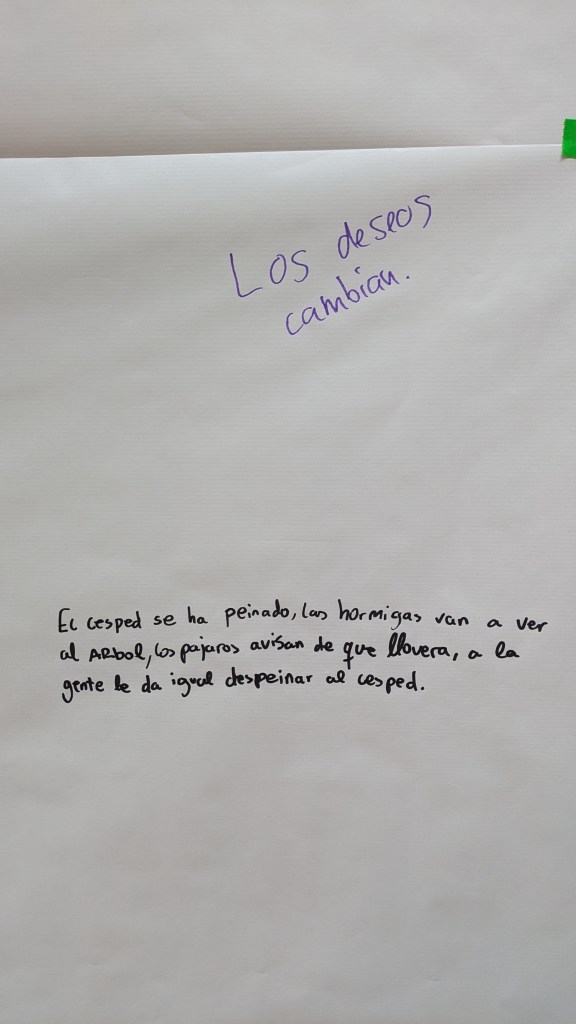 Los deseos
cambian.
El cesped se ha peinado, las hormigas van a ver
al ARbol, los pajaros avisan de que llovera, a la
gente le da igual despeinar al cesped.